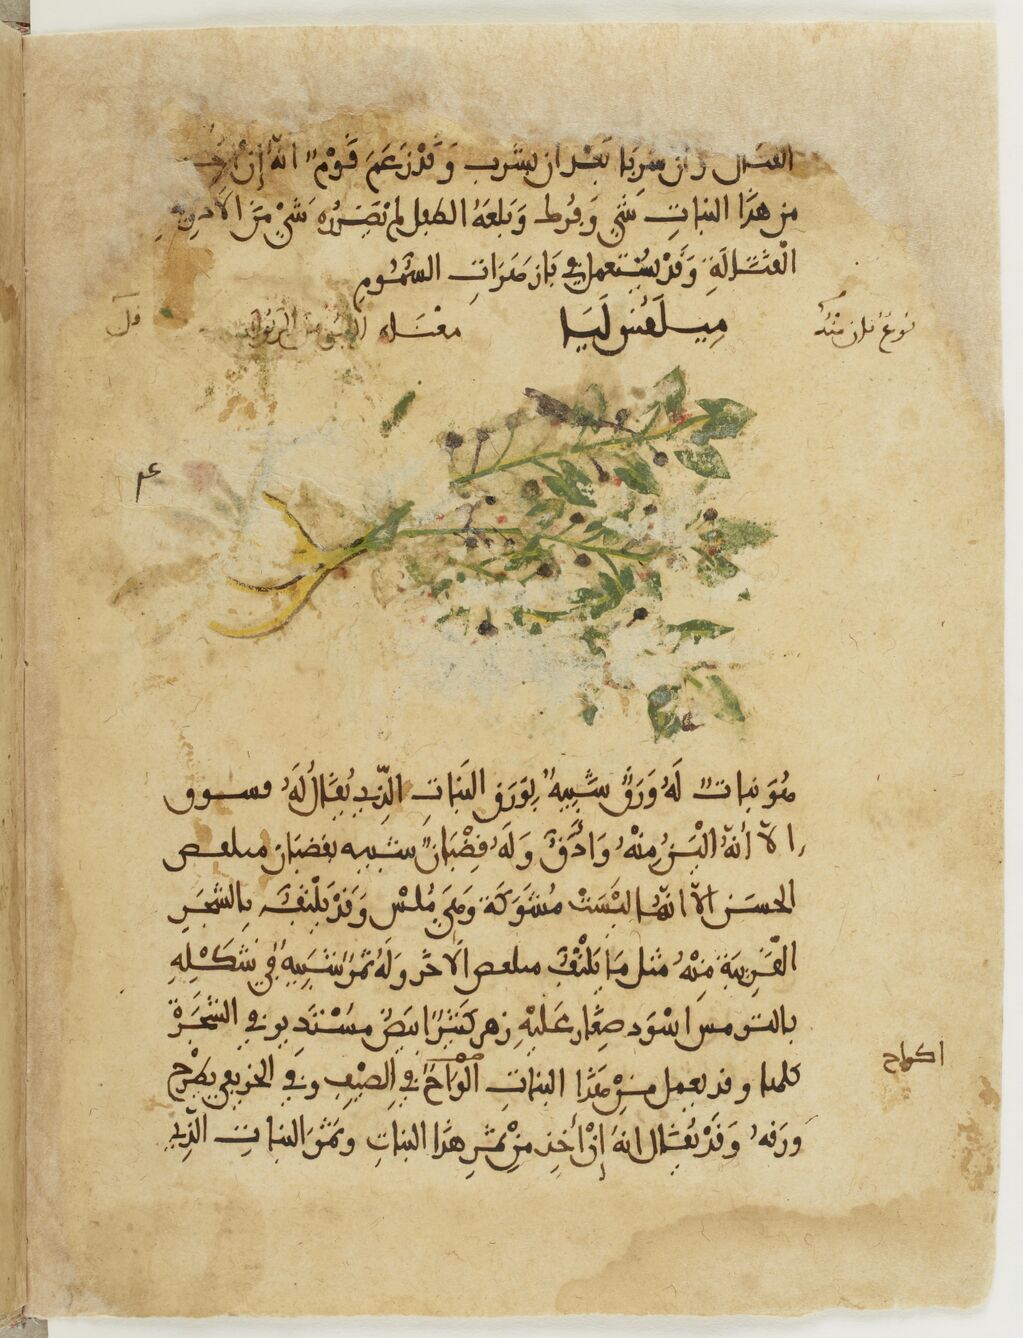 القتال وان شربا بعد ان يشرب وَقَدْ زَعَمَ قَوْمٌ اَنَّهُ إِنْ
من هذا النبات شَيْ وَفُرِطَ وَبَلَعَهُ الطفل لم تَضُرُّه شَيْ مِنَ الأَدوِيةِ
الْقَتَّالَةِ وَقَدْ يُسْتعمل في بَازهَرَاتِ السُّمُومِ
نوعٌ ثان منه
مِيلَقُس لَيَا
معناه
هُوَ نبات لَهُ وَرَقٌ شَبِيهٌ بِوَرَقِ النَبَاتِ الَّذِي يُقَالُ لَهُ قسوس
الا أنَّهُ الْيَنُ مِنْهُ وَادَقُّ وَلَهُ قِضْبَانٌ شبيه بقضبان ميلقص
الخشن الا انَّهَا لَيْسَتْ مُشَوَّكَة وَهِيَ مُلْس وَقَدْ يَلْتَفُّ بِالشجَرِ
القَرِيبَة مِنْهُ مثل مَا يَلْتَفُّ ميلقص الاخَر وَلَهُ ثمَرٌ شَبِيهٌ فِي شَكْلِهِ
بالترمس اسْوَد صِغَار عَليْهِ زهر كَثِيرٌ ابيَضُ مسْتَدِير في الشجَرَة
كلها وقد يعمل مِنْ هَذَا النبَات الْوَاحٌ في الصيْفِ وفي الخريف يطْرح
وَرَقه وَقَدْ يُقَال انهُ إِنْ أُخِذ مِنْ ثَمَرِ هَذَا النبَاتِ وثَمَرِ النبَات الَّذِي